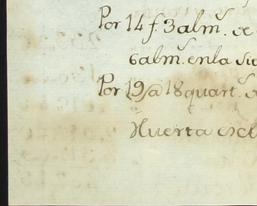 Por 14 f. 3 alm.s de
6 alm.s en la
Por 19 18 quart.s
Huerta